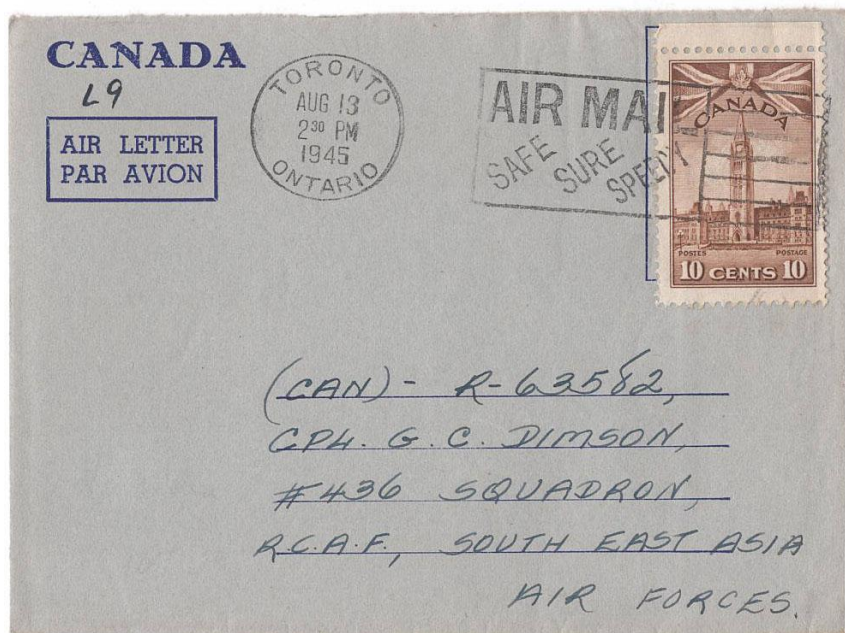 CANADA
L9
AIR LETTER
PAR AVION
TORONTO
AUG 13
2³⁰ PM
1945
ONTARIO
AIR MAIL
SAFE
SURE
SPEEDY
CANADA
POSTES POSTAGE
10 CENTS 10
(CAN) - R-63582,
CPL. G. C. DIMSON,
#436 SQUADRON,
R.C.A.F., SOUTH EAST ASIA
AIR FORCES.